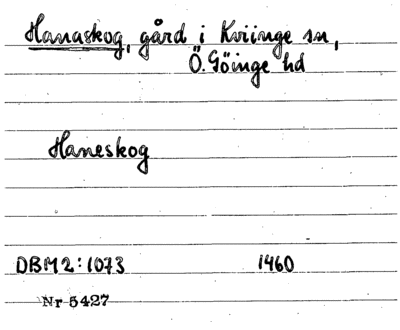 Hanaskog, gård i Kviinge sn,
Ö. Göinge hd
Haneskog
DBM2:1073 1460
Nr 5427